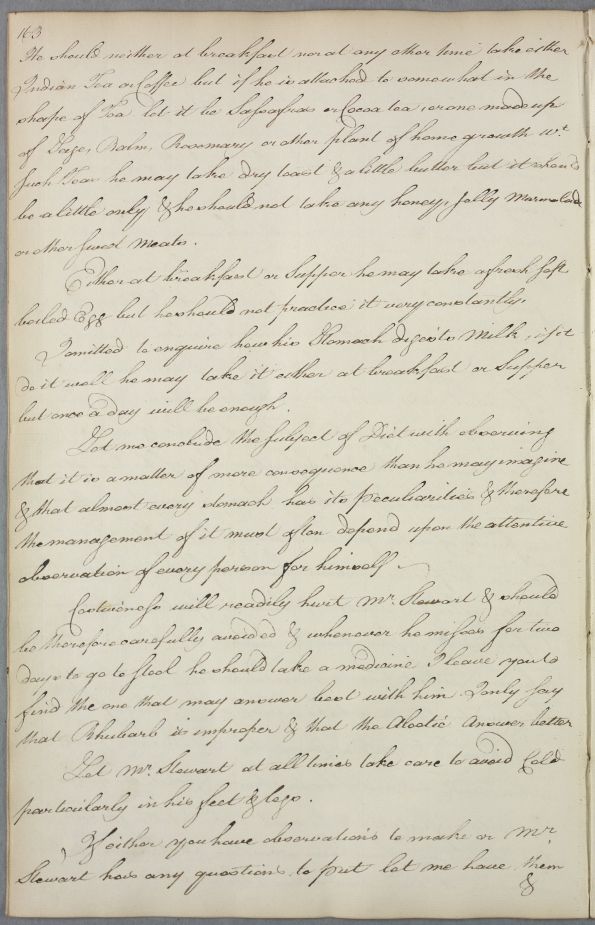 163
He should neither at breakfast nor at any other time take either
Indian Tea or Coffee but if he is attached to somewhat in the
shape of Tea let it be Sassafras or Cocoa tea, or one made up
of Sage, Balm, Rosemary or other plant of home growth wt
such Teas he may take dry toast & a little butter but it should
be a little only & he should not take any honey, Jelly Marmalade
or other sweet meats.
Either at breakfast or Supper he may take a fresh soft
boiled Egg but he should not practice it very constantly.
I omitted to enquire how his Stomach digests Milk, if it
do it well he may take it either at breakfast or Supper
but once a day will be enough.
Let me conclude the subject of Diet with observing
that it is a matter of more consequence than he may imagine
& that almost every stomach has its peculiarities & therefore
the management of it must often depend upon the attentive
observation of every person for himself
Costiveness will readily hurt Mr. Stewart & should
be therefore carefully avoided & whenever he misses for two
days to go to stool he should take a medicine I leave you to
find the one that may answer best with him I only say
that Rhubarb is improper & that the Aloetic Answer better
Let Mr. Stewart at all times take care to avoid Cold
particularly in his feet & legs.
If either you have observations to make or Mr.
Stewart has any questions to put let me have them
&